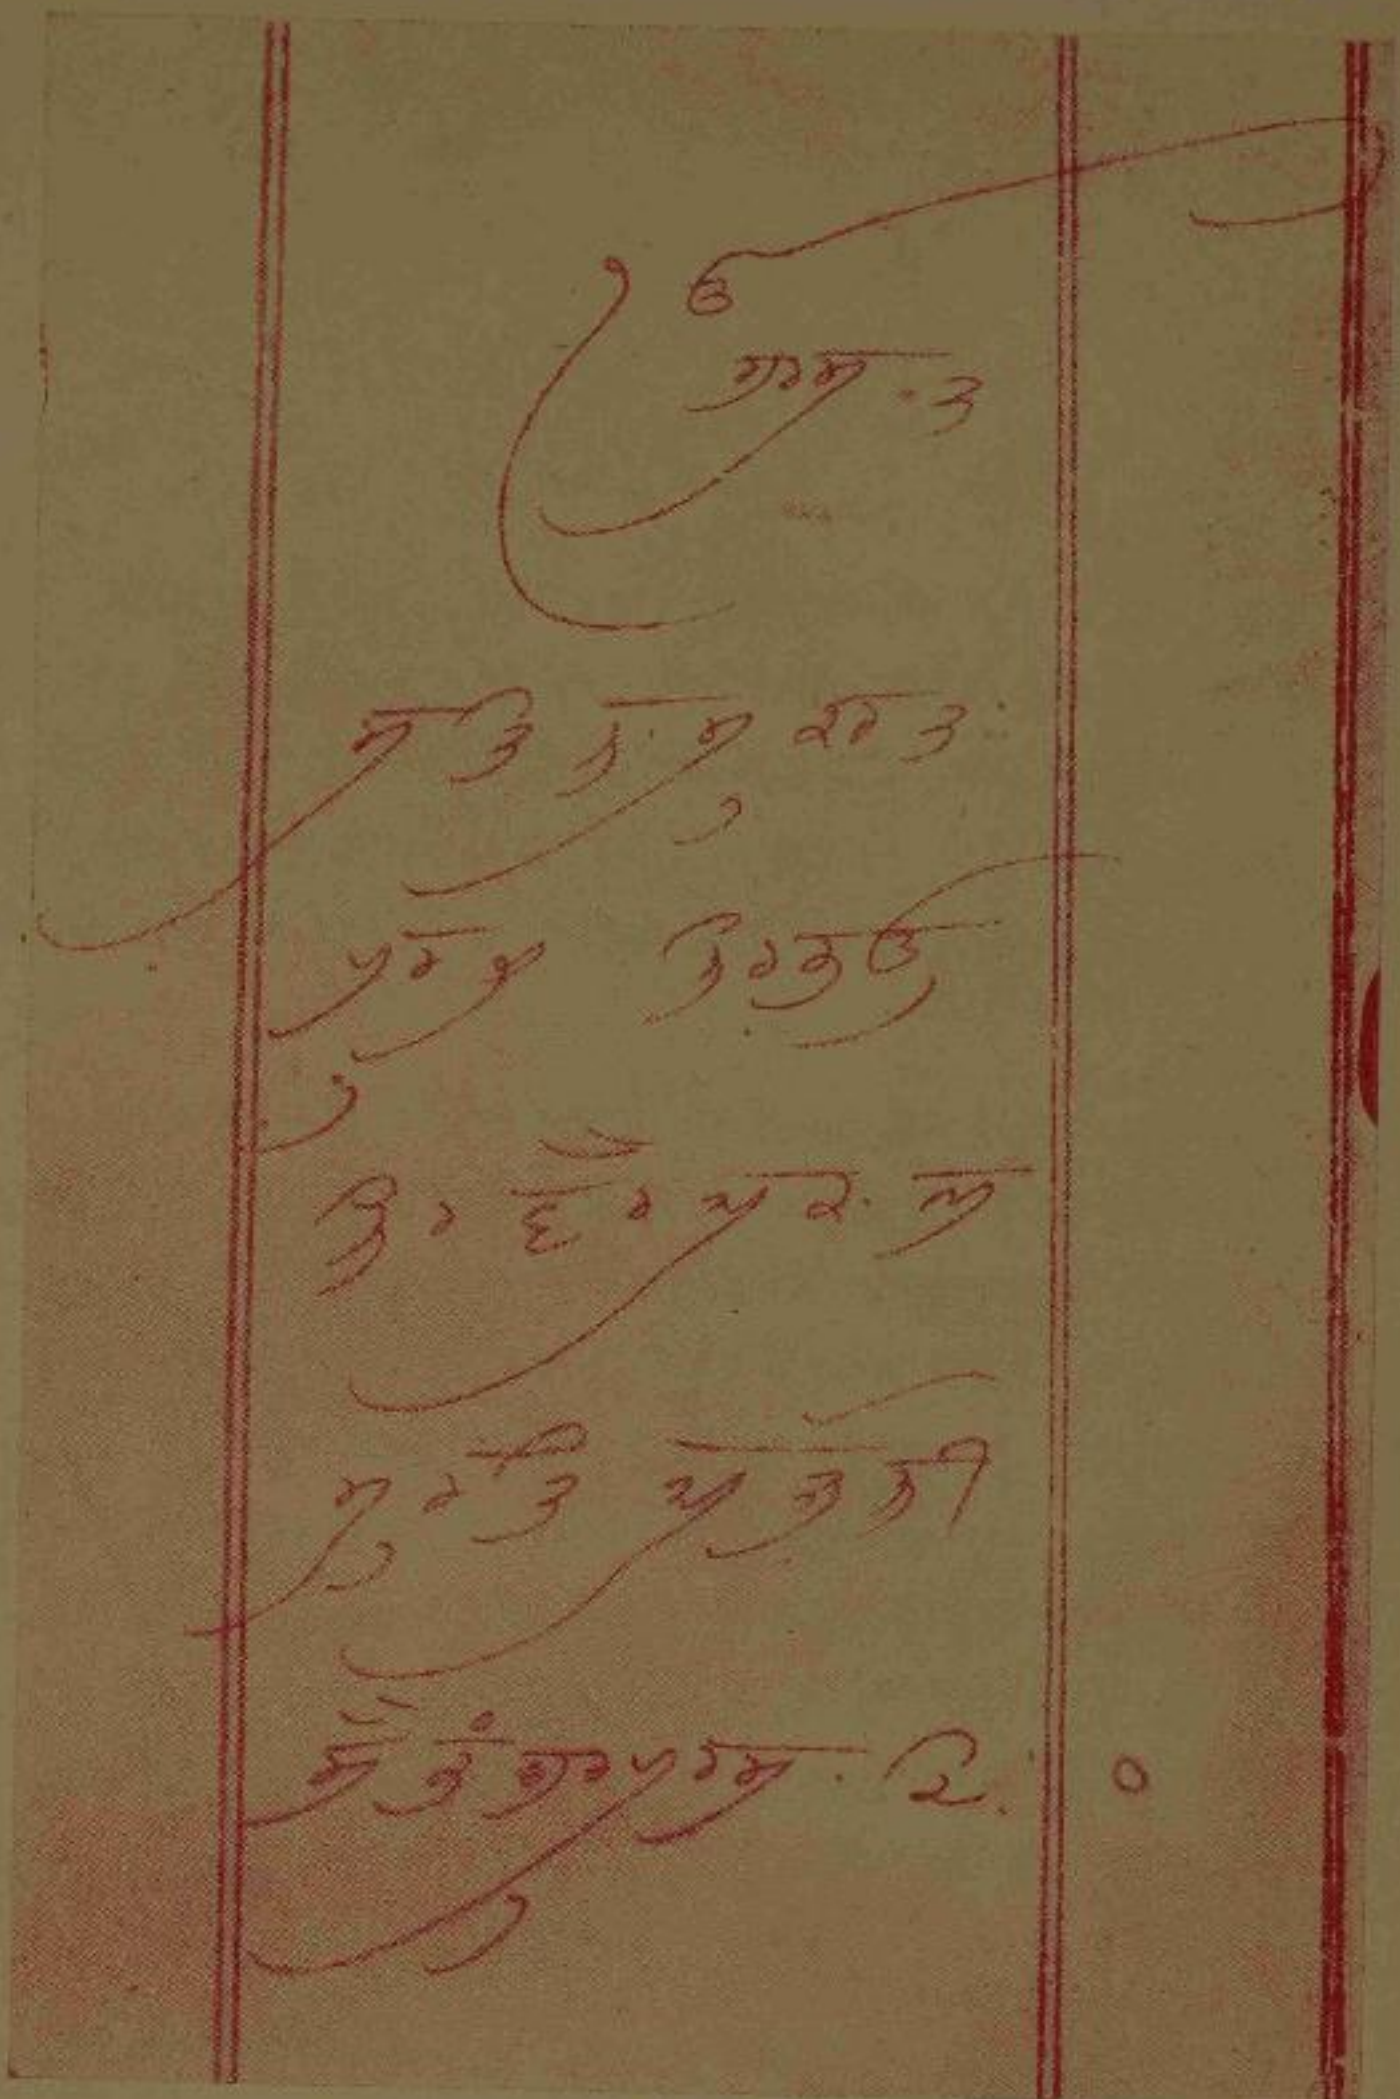 ੴ
ਸਤਿ ਨਾਮੁ ਕਰਤਾ
ਪੁਰਖੁ ਨਿਰਭਉ
ਨਿਰਵੈਰ ਅਕਾਲ
ਮੂਰਤਿ ਅਜੂਨੀ
ਸੈਭੰ ਗੁਰਪ੍ਰਸਾਦਿ